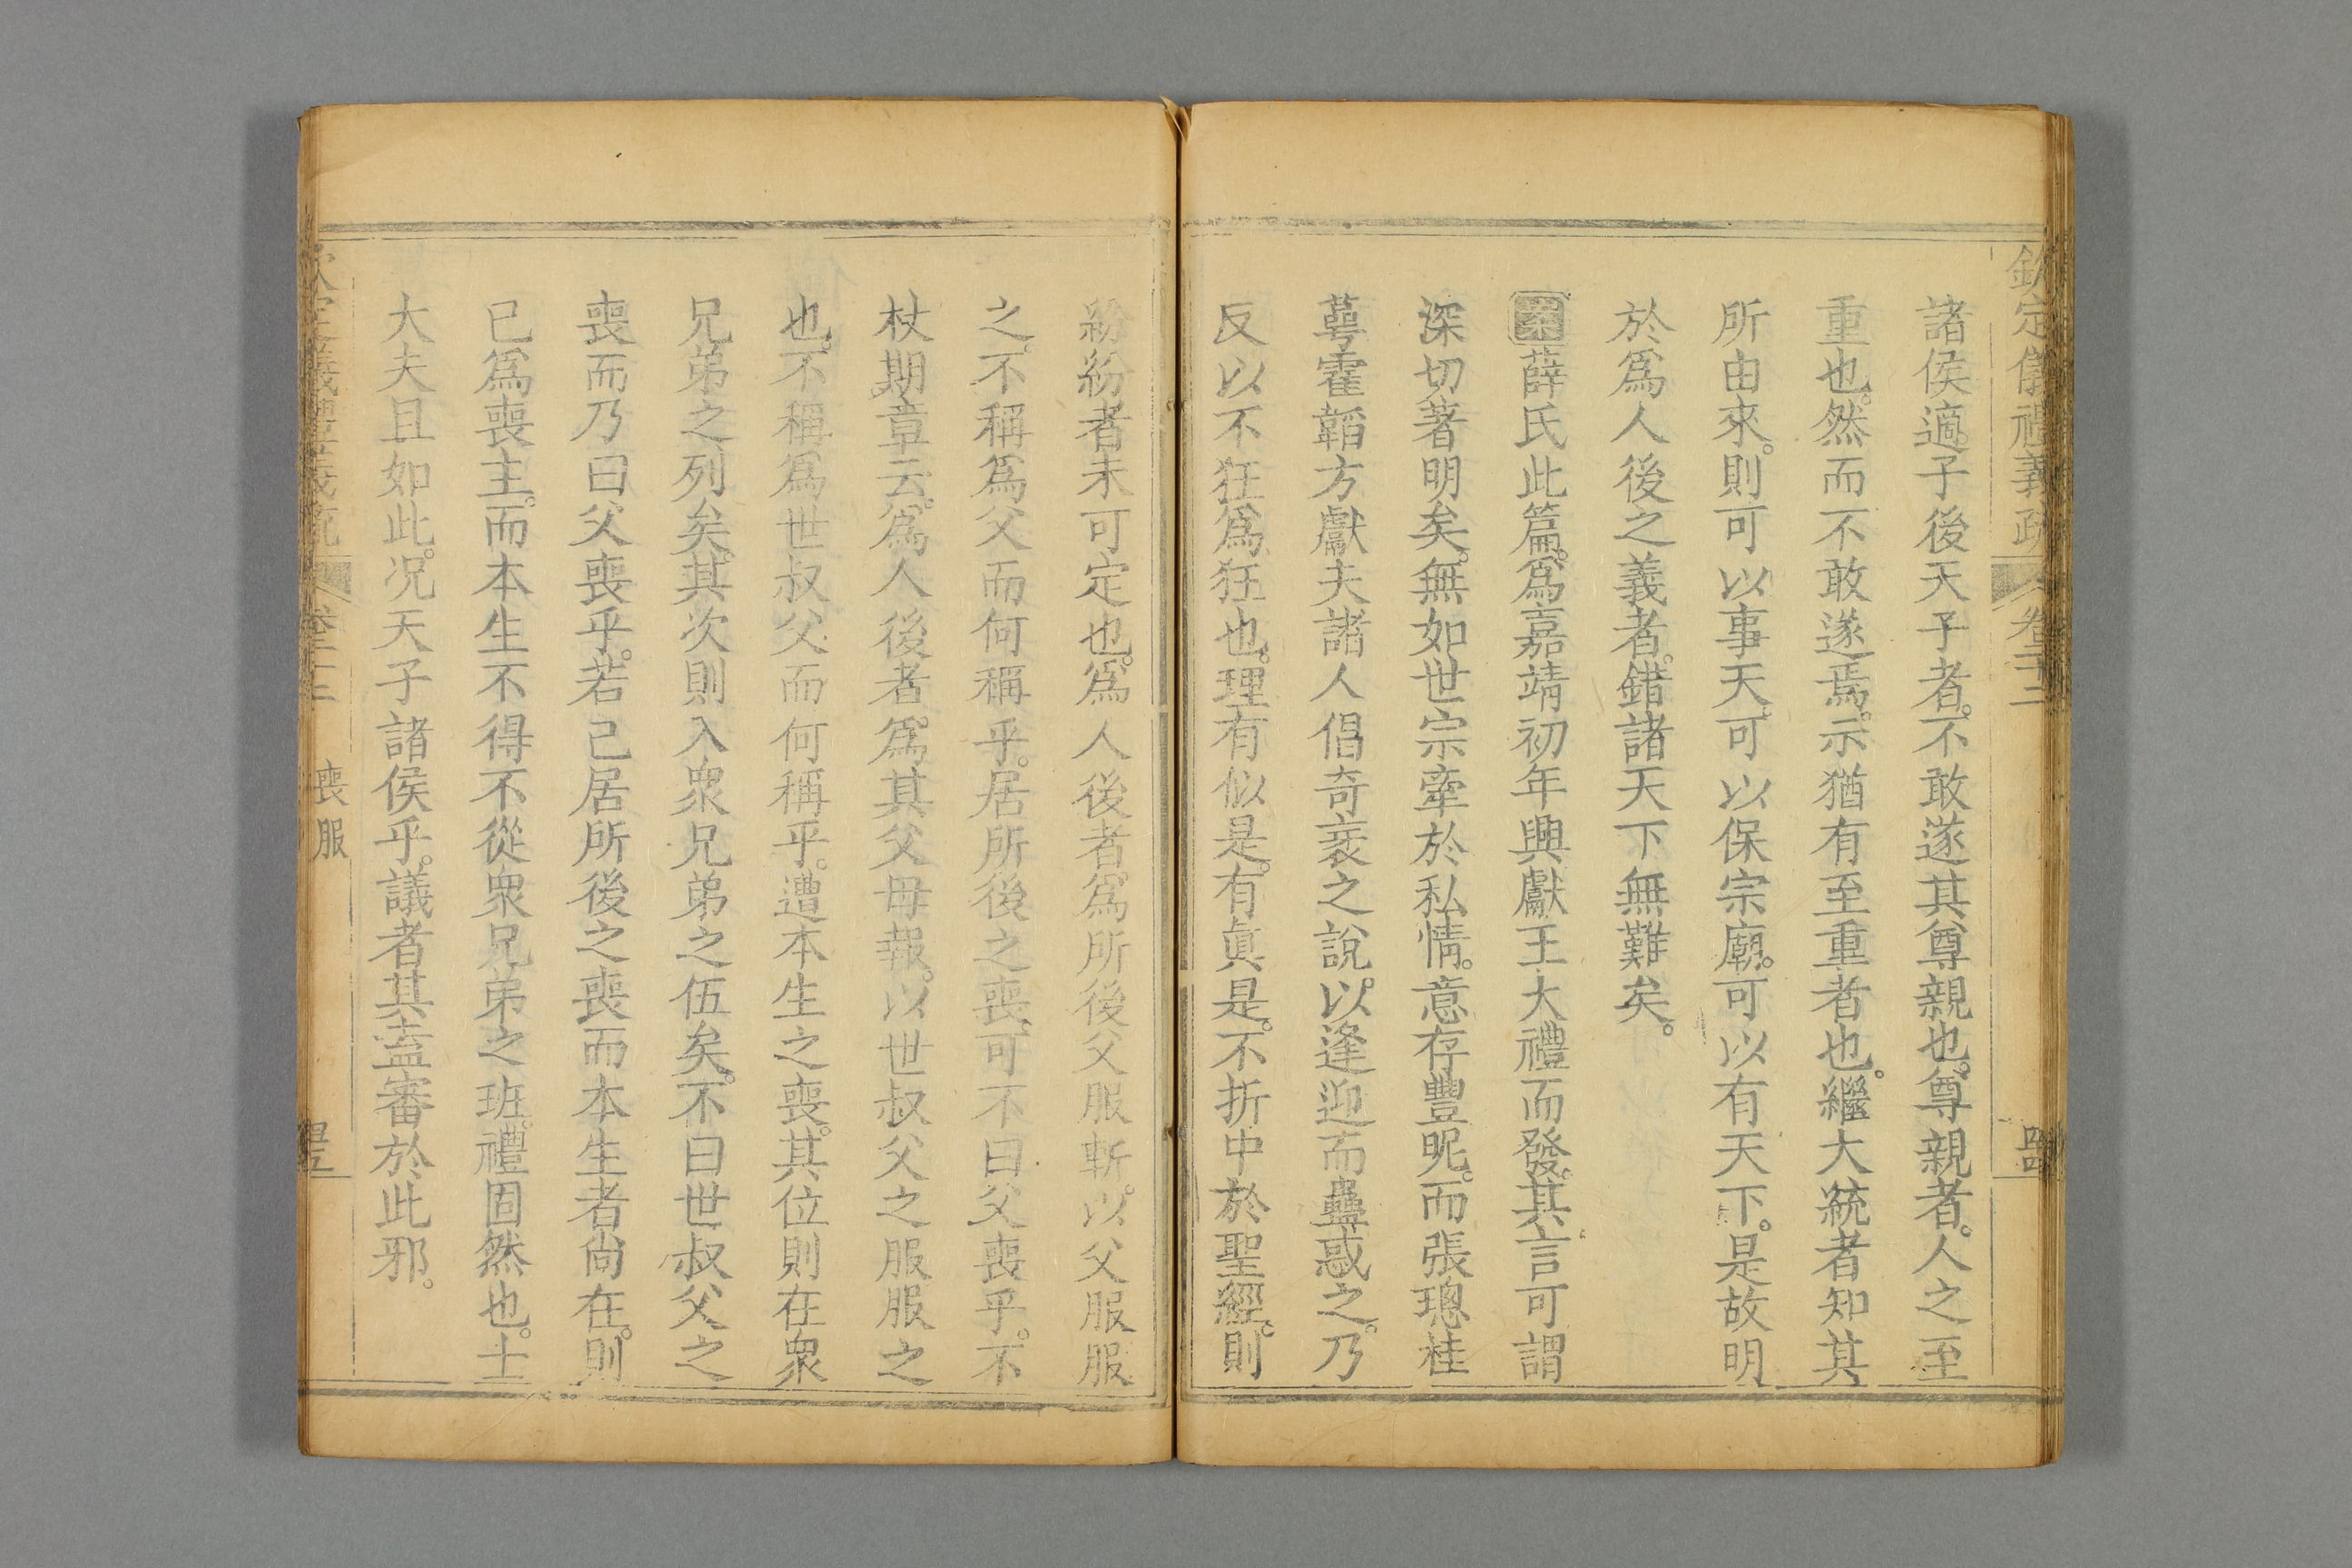 欽定儀禮義疏 卷二十二 四十四
諸侯適子後天子者。不敢遂其尊親也。尊親者。人之至
重也。然而不敢遂焉。示猶有至重者也。繼大統者知其
所由來。則可以事天。可以保宗廟。可以有天下。是故明
於爲人後之義者。錯諸天下無難矣。
案薛氏此篇。爲嘉靖初年興獻王大禮而發。其言可謂
深切著明矣。無如世宗牽於私情。意存豐昵。而張璁桂
萼霍韜方獻夫諸人倡奇衺之說。以逢迎而蠱惑之。乃
反以不狂爲狂也。理有似是。有眞是。不折中於聖經。則
紛紛者未可定也。爲人後者。爲所後父服斬。以父服服
之。不稱爲父而何稱乎。居所後之喪。可不曰父喪乎。不
杖期章云。爲人後者。爲其父母報。以世叔父之服服之
也。不稱爲世叔父而何稱乎。遭本生之喪。其位則在衆
兄弟之列矣。其次則入衆兄弟之伍矣。不曰世叔父之
喪而乃曰父喪乎。若己居所後之喪而本生者尙在。則
已爲喪主。而本生不得不從衆兄弟之班。禮固然也。士
大夫且如此。況天子諸侯乎。議者其盍審於此邪。
欽定儀禮義疏 卷二十二 喪服